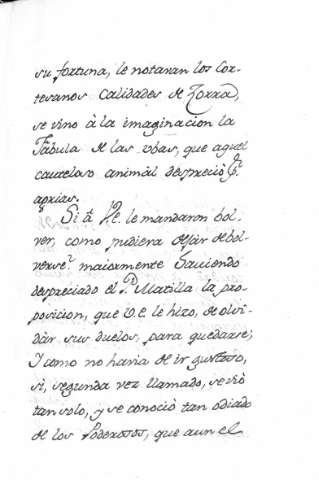 su fortuna, le notaran los Cor-
tesanos Calidades de Zorra,
se vino à la imaginacion la
Fabula de las vbas, que aquel
cauteloso animàl despreciò Pr.
agrias.
Si ã Pe. le mandaron bol-
ver, como pudiera dejar de bol-
verse? maiormente haviendo
despreciado el Pe. Matilla la pro-
posicion, que V.E. le hizo, de olvi-
dàr sus duelos, para quedarse;
Y como no havia de ir gustoso,
si, segunda vez llamado, se viò
tan solo, y se conociò tan odiado
de los Poderosos, que aun el